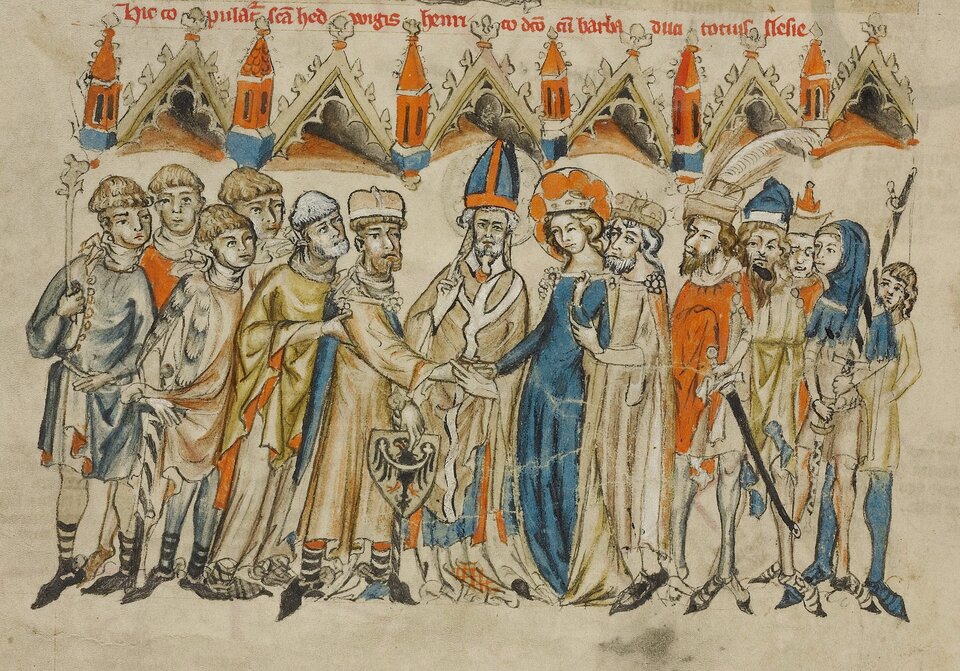 Hic copulat᷑ sc̄a hedwigis henrico dc̄o cū barba duci totius slesie